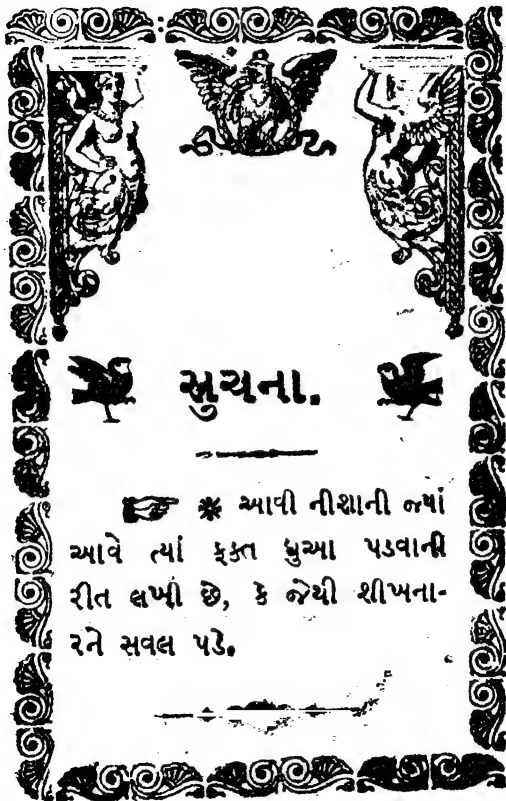 સુચના.
☞ * આવી નીશાની જ્યાં
આવે ત્યાં ફક્ત દુઆ પડવાની
રીત લખી છે, કે જેથી શીખના-
રને સવલ પડે.